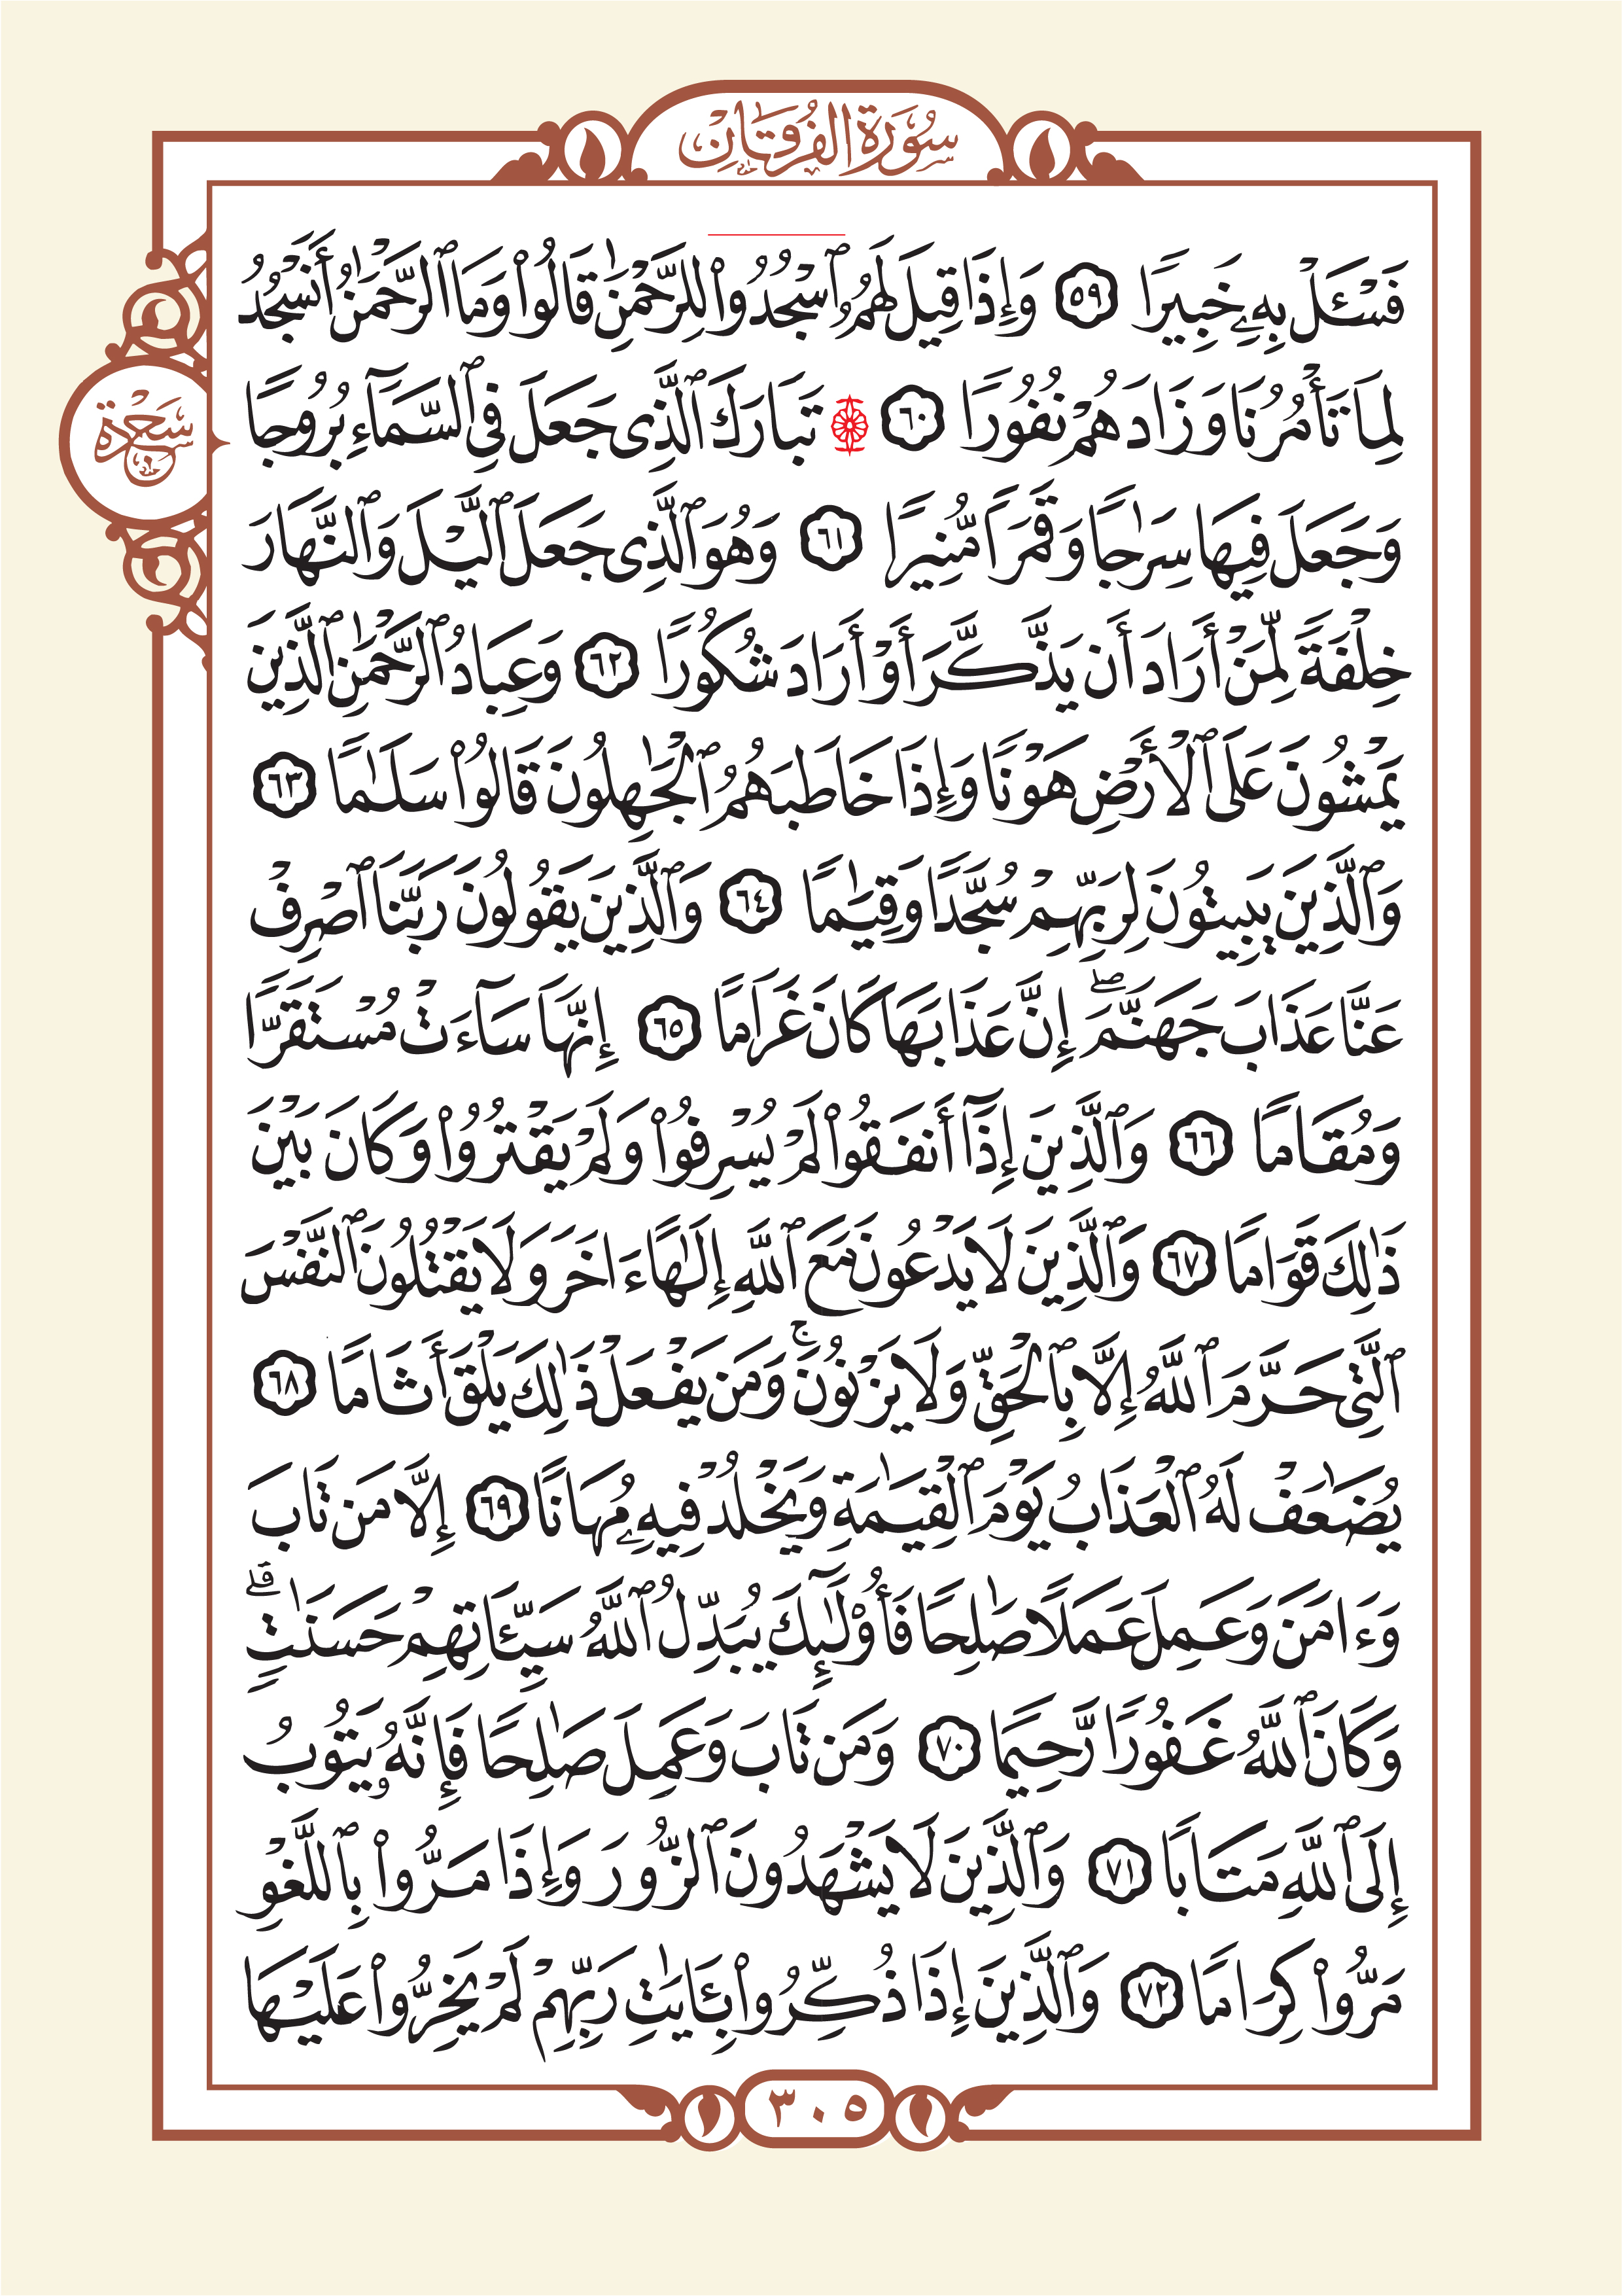 سُورَةُ الفُرْقَانِ
فَسْـَٔلْ بِهِۦ خَبِيرًا ٥٩ وَإِذَا قِيلَ لَهُمُ ٱسْجُدُوا۟ لِلرَّحْمَٰنِ قَالُوا۟ وَمَا ٱلرَّحْمَٰنُ أَنَسْجُدُ
لِمَا تَأْمُرُنَا وَزَادَهُمْ نُفُورًا ۩ ٦٠ تَبَارَكَ ٱلَّذِى جَعَلَ فِى ٱلسَّمَآءِ بُرُوجًا
سَجْدَة
وَجَعَلَ فِيهَا سِرَٰجًا وَقَمَرًا مُّنِيرًا ٦١ وَهُوَ ٱلَّذِى جَعَلَ ٱلَّيْلَ وَٱلنَّهَارَ
خِلْفَةً لِّمَنْ أَرَادَ أَن يَذَّكَّرَ أَوْ أَرَادَ شُكُورًا ٦٢ وَعِبَادُ ٱلرَّحْمَٰنِ ٱلَّذِينَ
يَمْشُونَ عَلَى ٱلْأَرْضِ هَوْنًا وَإِذَا خَاطَبَهُمُ ٱلْجَٰهِلُونَ قَالُوا۟ سَلَٰمًا ٦٣
وَٱلَّذِينَ يَبِيتُونَ لِرَبِّهِمْ سُجَّدًا وَقِيَٰمًا ٦٤ وَٱلَّذِينَ يَقُولُونَ رَبَّنَا ٱصْرِفْ
عَنَّا عَذَابَ جَهَنَّمَ ۖ إِنَّ عَذَابَهَا كَانَ غَرَامًا ٦٥ إِنَّهَا سَآءَتْ مُسْتَقَرًّا
وَمُقَامًا ٦٦ وَٱلَّذِينَ إِذَآ أَنفَقُوا۟ لَمْ يُسْرِفُوا۟ وَلَمْ يَقْتُرُوا۟ وَكَانَ بَيْنَ
ذَٰلِكَ قَوَامًا ٦٧ وَٱلَّذِينَ لَا يَدْعُونَ مَعَ ٱللَّهِ إِلَٰهًا ءَاخَرَ وَلَا يَقْتُلُونَ ٱلنَّفْسَ
ٱلَّتِى حَرَّمَ ٱللَّهُ إِلَّا بِٱلْحَقِّ وَلَا يَزْنُونَ ۚ وَمَن يَفْعَلْ ذَٰلِكَ يَلْقَ أَثَامًا ٦٨
يُضَٰعَفْ لَهُ ٱلْعَذَابُ يَوْمَ ٱلْقِيَٰمَةِ وَيَخْلُدْ فِيهِۦ مُهَانًا ٦٩ إِلَّا مَن تَابَ
وَءَامَنَ وَعَمِلَ عَمَلًا صَٰلِحًا فَأُو۟لَٰٓئِكَ يُبَدِّلُ ٱللَّهُ سَيِّـَٔاتِهِمْ حَسَنَٰتٍ ۗ
وَكَانَ ٱللَّهُ غَفُورًا رَّحِيمًا ٧٠ وَمَن تَابَ وَعَمِلَ صَٰلِحًا فَإِنَّهُۥ يَتُوبُ
إِلَى ٱللَّهِ مَتَابًا ٧١ وَٱلَّذِينَ لَا يَشْهَدُونَ ٱلزُّورَ وَإِذَا مَرُّوا۟ بِٱللَّغْوِ
مَرُّوا۟ كِرَامًا ٧٢ وَٱلَّذِينَ إِذَا ذُكِّرُوا۟ بِـَٔايَٰتِ رَبِّهِمْ لَمْ يَخِرُّوا۟ عَلَيْهَا
٣٠٥